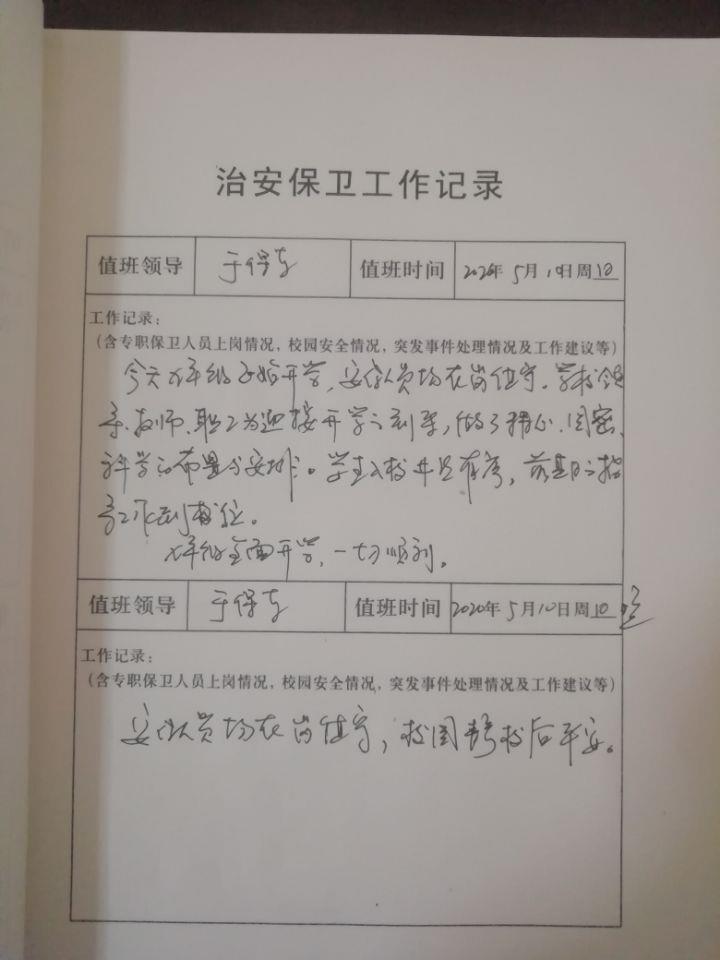 治安保卫工作记录
值班领导 于保 值班时间 2020年5月10日周
工作记录：
（含专职保卫人员上岗情况，校园安全情况，突发事件处理情况及工作建议等）
今天 年级开始开学，安保人员均在岗值守。学校领
导、教师、职工为迎接开学之到来，做了精心、周密、
科学之布置与安排。学生入校井然有序，
工作到位。
年级全面开学，一切顺利。
值班领导 于保 值班时间 2020年5月10日周 晚
工作记录：
（含专职保卫人员上岗情况，校园安全情况，突发事件处理情况及工作建议等）
安保人员均在岗值守，校园 平安。